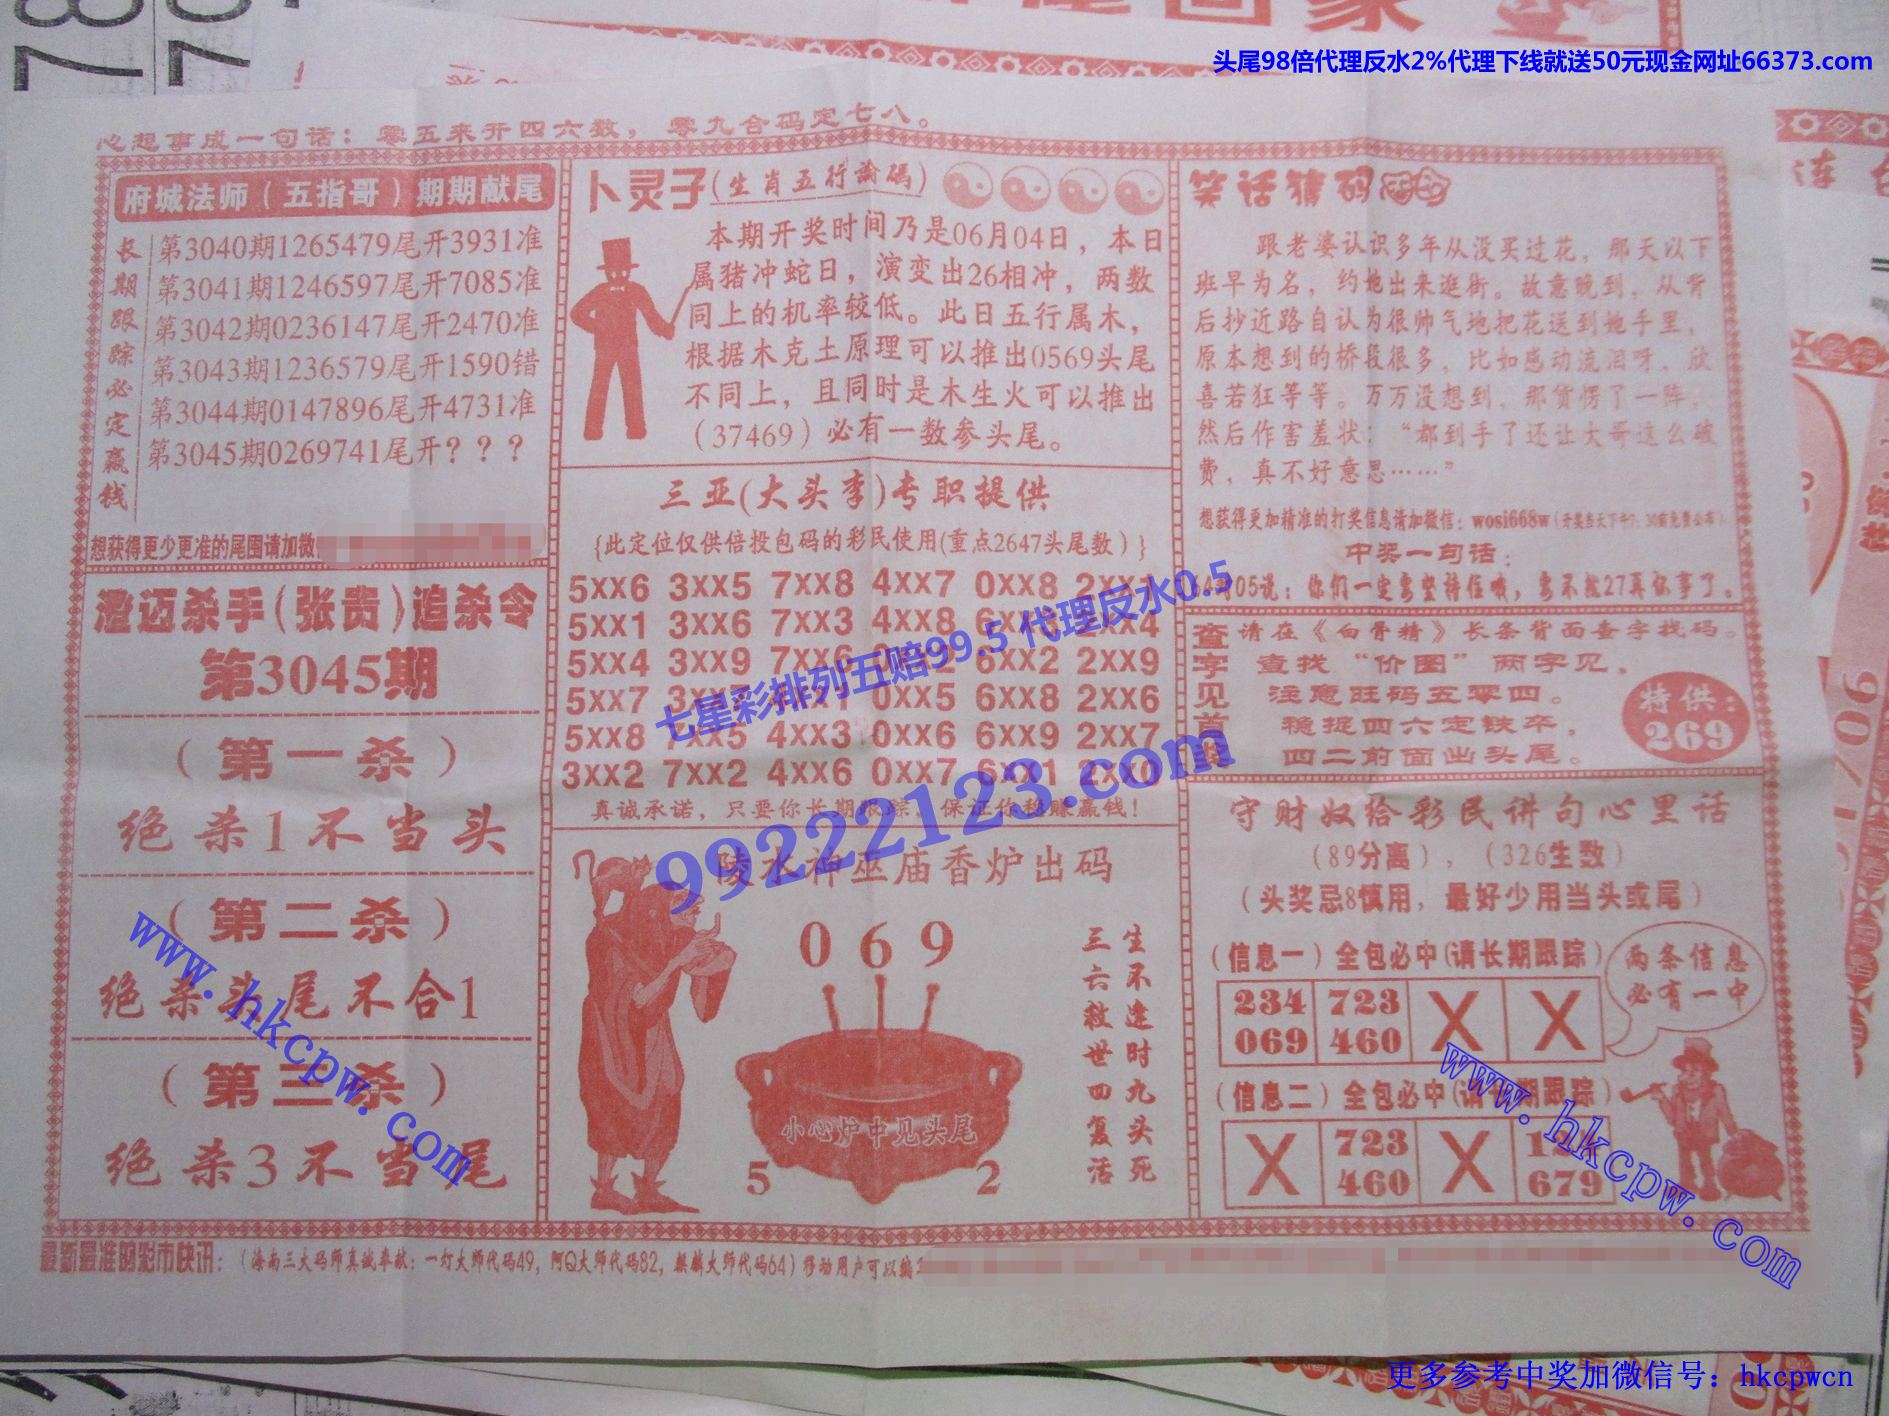 头尾98倍代理反水2%代理下线就送50元现金网址66373.com
心想事成一句话：零五来开四六数，零九合码定七八。
府城法师（五指哥）期期献尾
长期跟踪必定赢钱
第3040期1265479尾开3931准
第3041期1246597尾开7085准
第3042期0236147尾开2470准
第3043期1236579尾开1590错
第3044期0147896尾开4731准
第3045期0269741尾开？？？
想获得更少更准的尾围请加微
澄迈杀手（张贵）追杀令
第3045期
（第一杀）
绝杀1不当头
（第二杀）
绝杀头尾不合1
（第三杀）
绝杀3不当尾
卜灵子(生肖五行論碼)
本期开奖时间乃是06月04日，本日
属猪冲蛇日，演变出26相冲，两数
同上的机率较低。此日五行属木，
根据木克土原理可以推出0569头尾
不同上，且同时是木生火可以推出
（37469）必有一数参头尾。
三亚(大头李)专职提供
{此定位仅供倍投包码的彩民使用(重点2647头尾数）}
5XX6 3XX5 7XX8 4XX7 0XX8 2XX1
5XX1 3XX6 7XX3 4XX8 2XX4
5XX4 3XX9 7XX6 6XX2 2XX9
5XX7 0XX5 6XX8 2XX6
5XX8 7XX5 4XX3 0XX6 6XX9 2XX7
3XX2 7XX2 4XX6 0XX7 6XX1 2XX0
真诚承诺，只要你长期跟踪，保证你稳赚赢钱！
七星彩排列五赔99.5 代理反水0.5
99222123.com
陵水神巫庙香炉出码
0 6 9
生不逢时九头死
三六救世四复活
小心炉中见头尾
5 2
笑话猜码
跟老婆认识多年从没买过花，那天以下
班早为名，约她出来逛街。故意晚到，从背
后抄近路自认为很帅气地把花送到她手里，
原本想到的桥段很多，比如感动流泪呀，欣
喜若狂等等。万万没想到，那货愣了一阵，
然后作害羞状：“都到手了还让大哥这么破
费，真不好意思……”
想获得更加精准的打奖信息请加微信：wosi668w(开奖当天下午7：30前免费公布)
中奖一句话：
05说：你们一定要坚持住哦，要不然27再坏事了。
查字见首奖
请在《白骨精》长条背面查字找码。
查找“价图”两字见，
注意旺码五零四。
稳捉四六定铁卒，
四二前面出头尾。
特供：
269
守财奴给彩民讲句心里话
（89分离），（326生数）
（头奖忌8慎用，最好少用当头或尾）
（信息一）全包必中(请长期跟踪）
两条信息
必有一中
234 723 X X
069 460
（信息二）全包必中(请长期跟踪）
X 723 X
460 679
www.hkcpw.com
www.hkcpw.com
最新最准的彩市快讯：（海南三大码师真诚奉献：一灯大师代码49，阿Q大师代码82，麒麟大师代码64）移动用户可以编
更多参考中奖加微信号：hkcpwcn